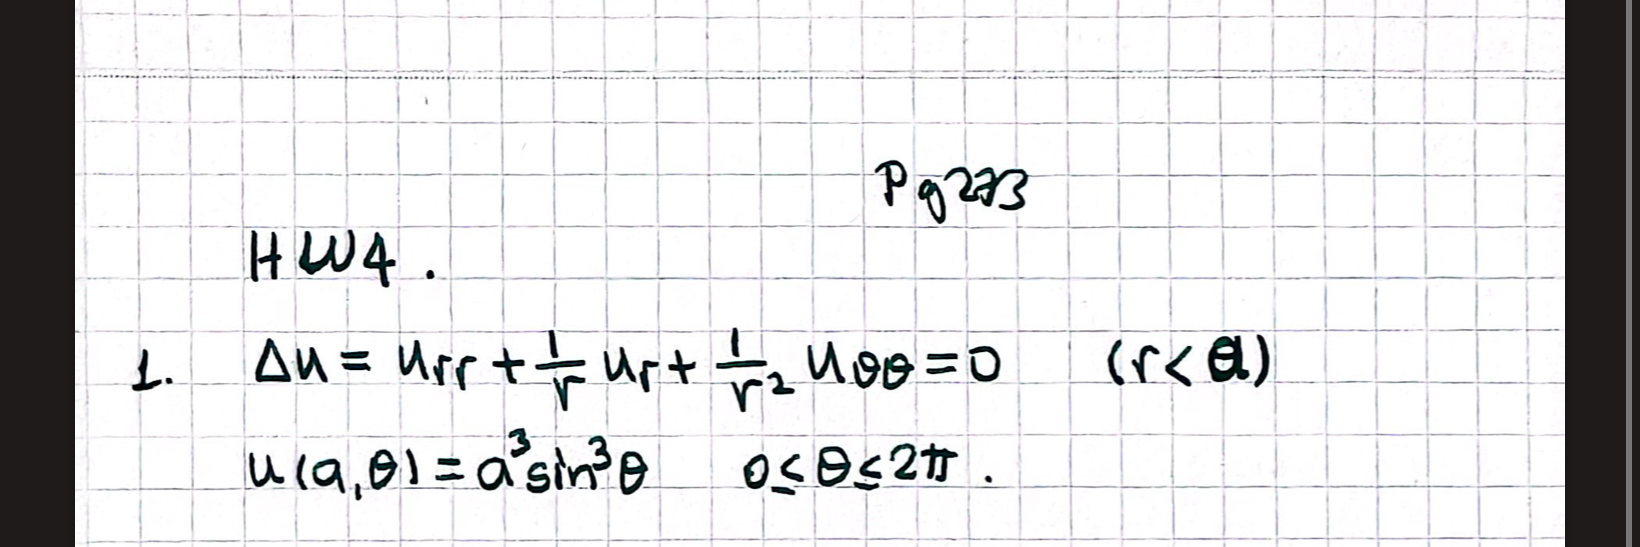 Pg 273
HW4.
1. Δu = u_rr + 1/r u_r + 1/r² u_θθ = 0 (r < a)
u(a,θ) = a³sin³θ 0 ≤ θ ≤ 2π.